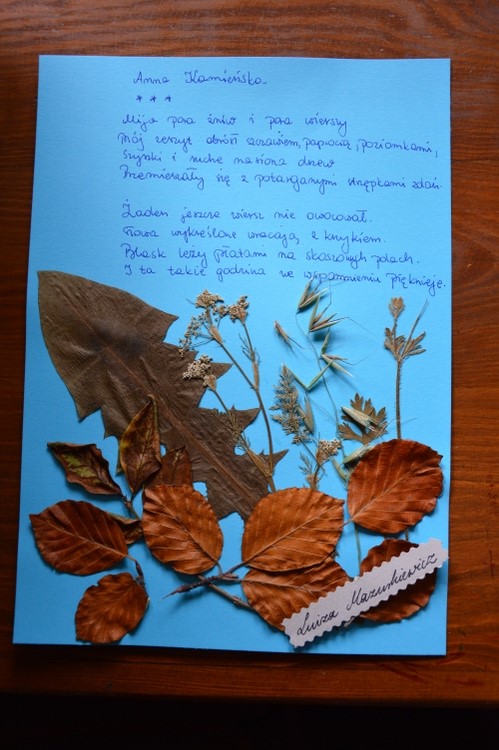 Anna Kamieńska
* * *
Mija pora żniw i pora wierszy
Mój zeszyt obrósł szczawiem, paprocią, poziomkami,
Szyszki i suche nasiona drzew
Przemieszały się z potarganymi strzępkami zdań.
Żaden jeszcze wiersz nie owocował.
Słowa wykreślone wracają z krzykiem.
Blask leży płatami na skoszonych polach.
I ta także godzina we wspomnieniu pięknieje.
Luiza Mazurkiewicz